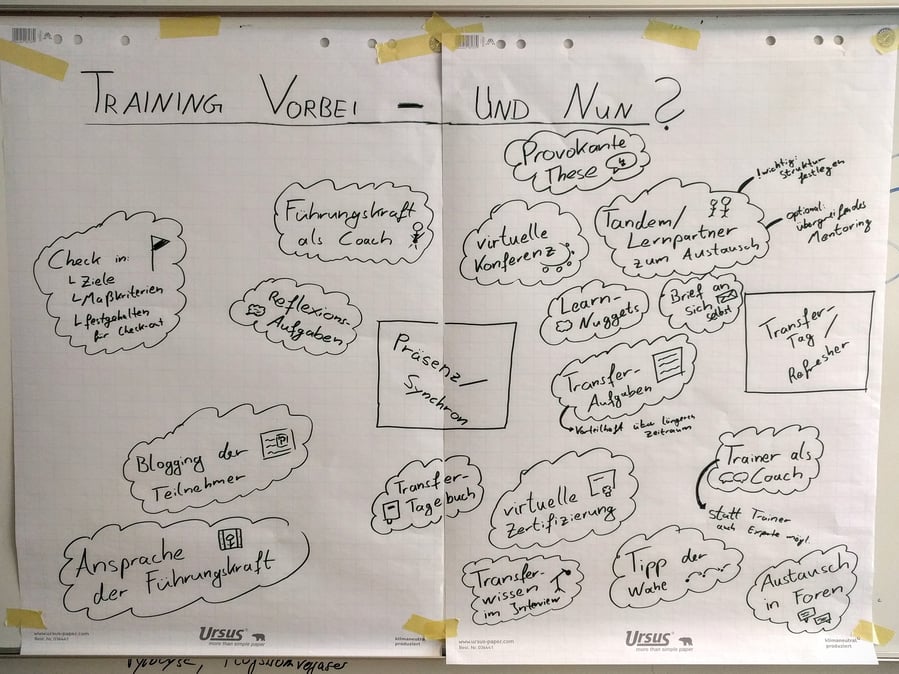 TRAINING VORBEI – UND NUN?
Provokante
These
Führungskraft
als Coach
Check in:
Ziele
Maßkriterien
festgehalten
für Check-out
Reflexions-
Aufgaben
virtuelle
Konferenz
Tandem/
Lernpartner
zum Austausch
! wichtig:
Struktur
festlegen
optional:
übergreifendes
Mentoring
Learn-
Nuggets
Brief an
sich
selbst
Präsenz/
Synchron
Transfer-
Tag/
Refresher
Transfer-
Aufgaben
Vorteilhaft über längeren
Zeitraum
Blogging der
Teilnehmer
Transfer-
Tagebuch
virtuelle
Zertifizierung
Trainer als
Coach
statt Trainer
auch Experte mögl.
Ansprache
der Führungskraft
Transfer-
wissen
im Interview
Tipp der
Wohe
Austausch
in Foren
www.ursus-paper.com
Best. Nr. 036441
Ursus
more than simple paper
klimaneutral
www.ursus-paper.com
Best. Nr. 036441
Ursus
more than simple paper
klimaneutral
produziert